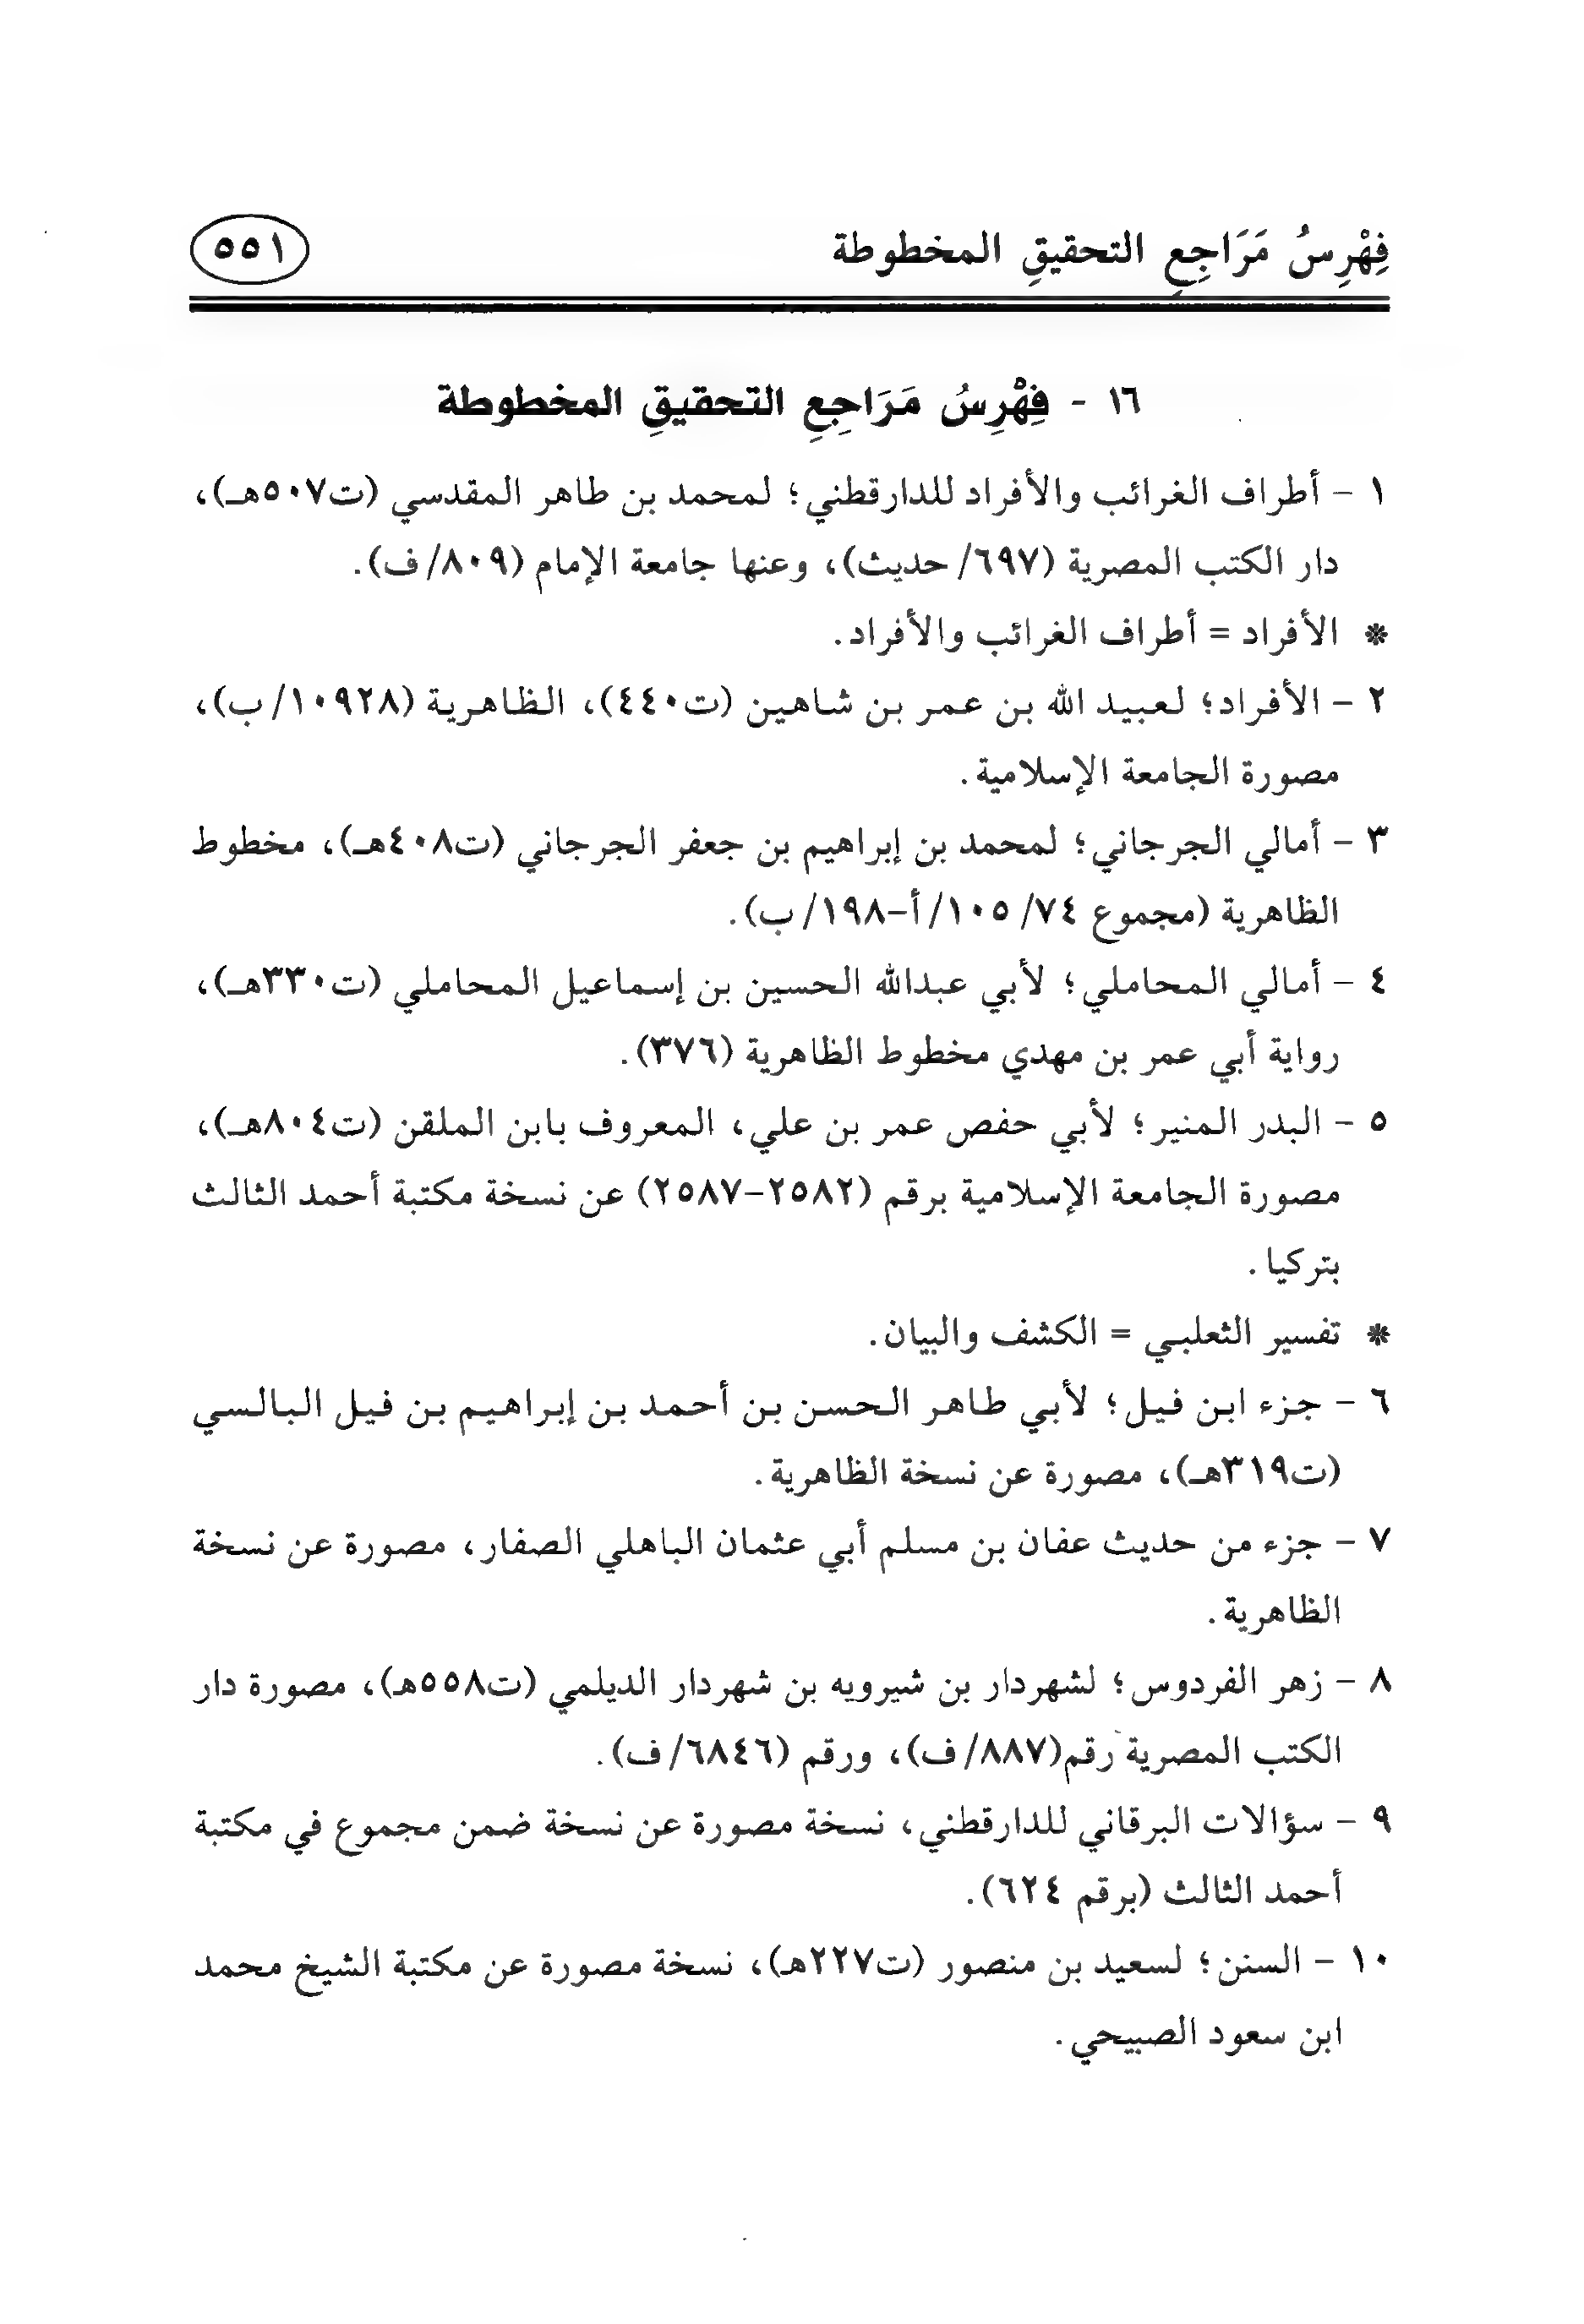 فِهْرِسُ مَرَاجِعِ التحقيقِ المخطوطة
٥٥١
١٦ - فِهْرِسُ مَرَاجِعِ التحقيقِ المخطوطة
١ - أطراف الغرائب والأفراد للدارقطني؛ لمحمد بن طاهر المقدسي (ت٥٠٧هـ)،
دار الكتب المصرية (٦٩٧/ حديث)، وعنها جامعة الإمام (٨٠٩/ ف).
* الأفراد = أطراف الغرائب والأفراد.
٢ - الأفراد؛ لعبيد الله بن عمر بن شاهين (ت٤٤٠)، الظاهرية (١٠٩٢٨/ ب)،
مصورة الجامعة الإسلامية.
٣ - أمالي الجرجاني؛ لمحمد بن إبراهيم بن جعفر الجرجاني (ت٤٠٨هـ)، مخطوط
الظاهرية (مجموع ٧٤/ ١٠٥/ أ-١٩٨/ ب).
٤ - أمالي المحاملي؛ لأبي عبدالله الحسين بن إسماعيل المحاملي (ت٣٣٠هـ)،
رواية أبي عمر بن مهدي مخطوط الظاهرية (٣٧٦).
٥ - البدر المنير؛ لأبي حفص عمر بن علي، المعروف بابن الملقن (ت٨٠٤هـ)،
مصورة الجامعة الإسلامية برقم (٢٥٨٢-٢٥٨٧) عن نسخة مكتبة أحمد الثالث
بتركيا.
* تفسير الثعلبي = الكشف والبيان.
٦ - جزء ابن فيل؛ لأبي طاهر الحسن بن أحمد بن إبراهيم بن فيل البالسي
(ت٣١٩هـ)، مصورة عن نسخة الظاهرية.
٧ - جزء من حديث عفان بن مسلم أبي عثمان الباهلي الصفار، مصورة عن نسخة
الظاهرية.
٨ - زهر الفردوس؛ لشهردار بن شيرويه بن شهردار الديلمي (ت٥٥٨هـ)، مصورة دار
الكتب المصرية رقم(٨٨٧/ ف)، ورقم (٦٨٤٦/ ف).
٩ - سؤالات البرقاني للدارقطني، نسخة مصورة عن نسخة ضمن مجموع في مكتبة
أحمد الثالث (برقم ٦٢٤).
١٠ - السنن؛ لسعيد بن منصور (ت٢٢٧هـ)، نسخة مصورة عن مكتبة الشيخ محمد
ابن سعود الصبيحي.